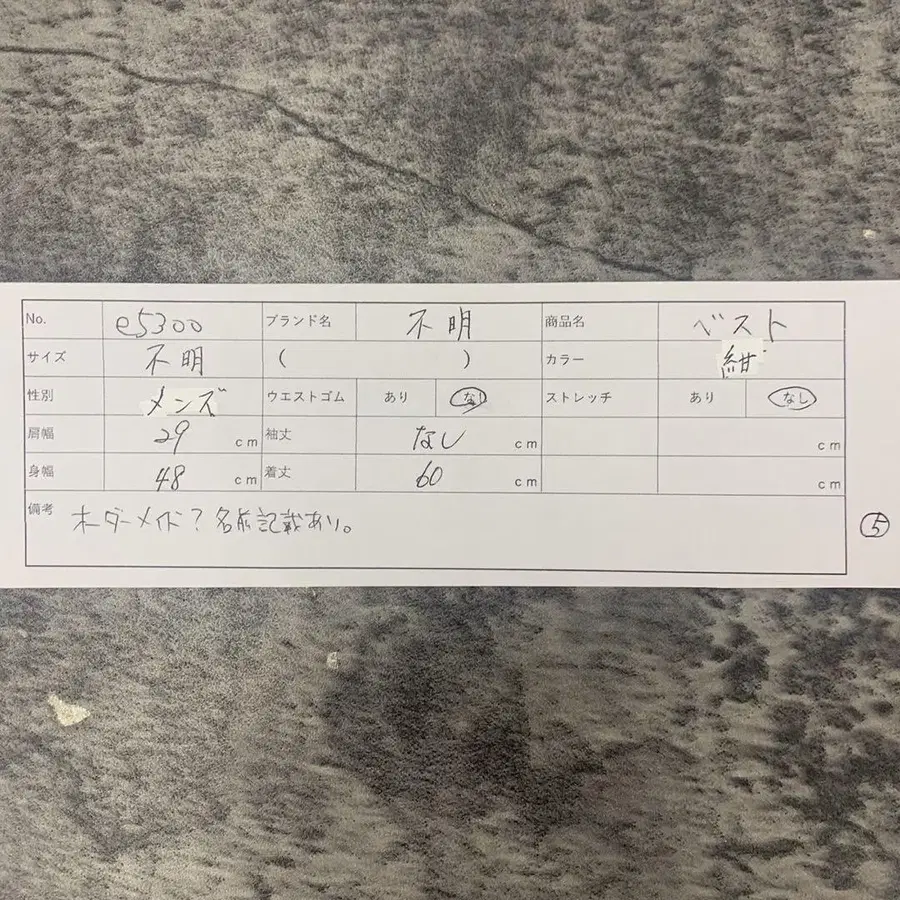 No. e5300 ブランド名 不明 商品名 ベスト
サイズ 不明 ( ) カラー 紺
性別 メンズ ウエストゴム あり なし ストレッチ あり なし
肩幅 29 cm 袖丈 なし cm cm
身幅 48 cm 着丈 60 cm cm
備考 オーダーメイド?名前記載あり。
5